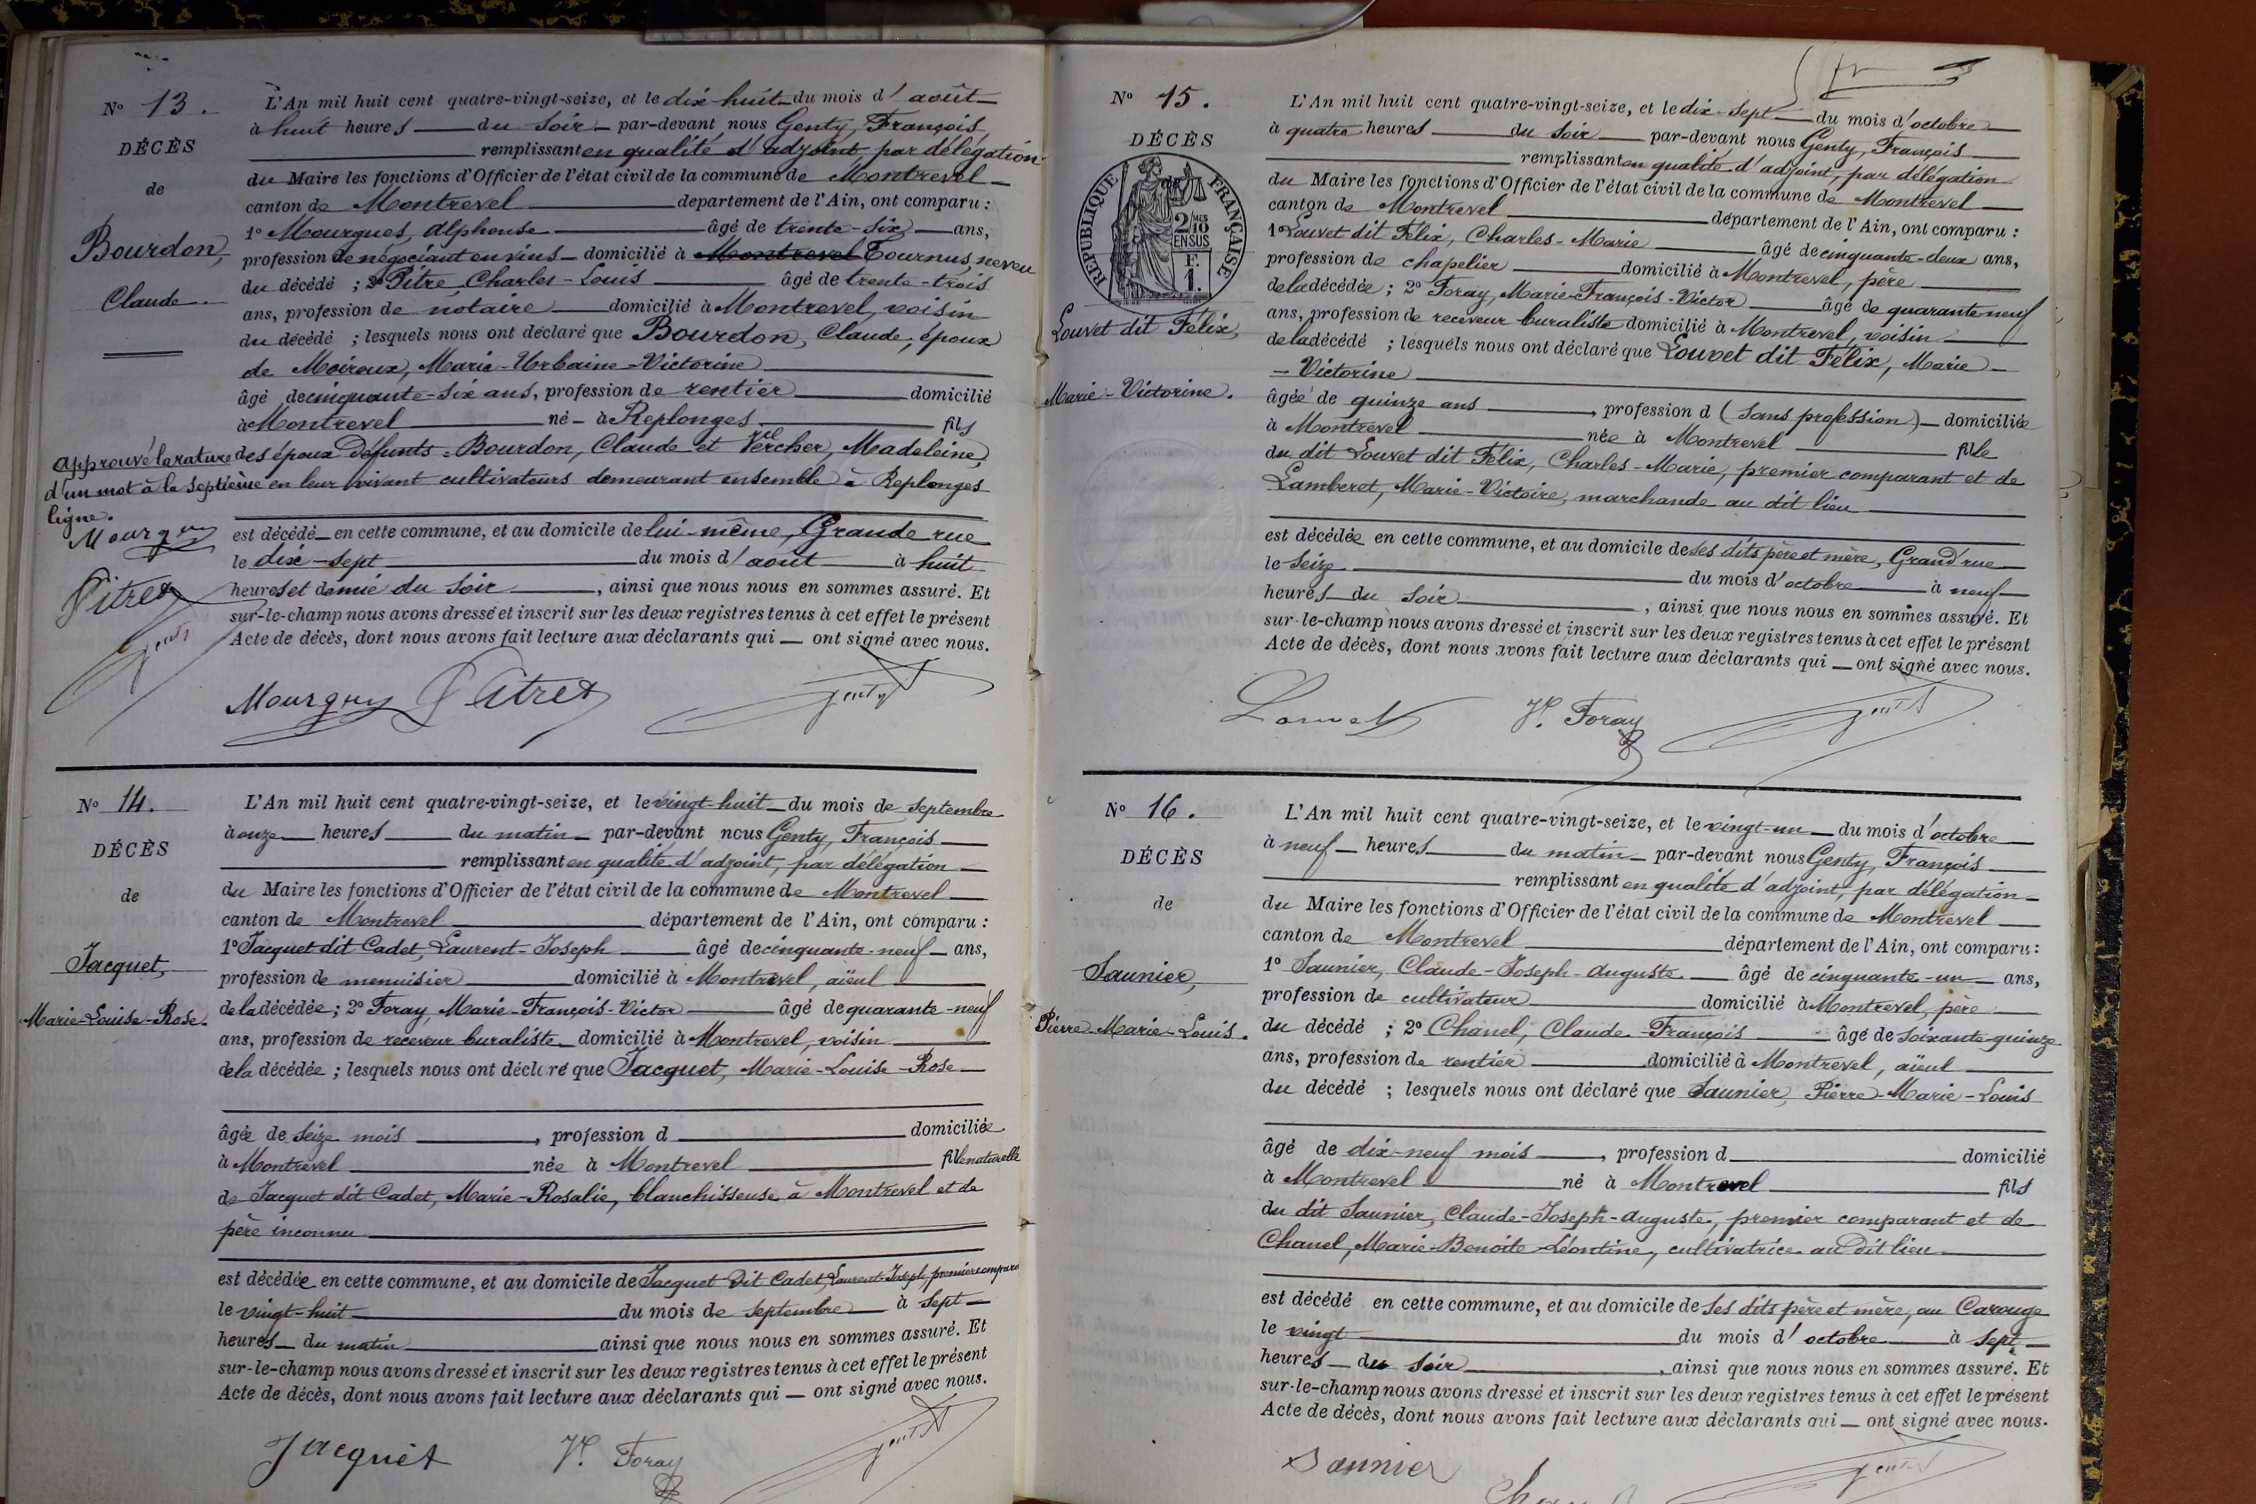 N° 13.
DÉCÈS
de
Bourdon,
Claude.
L'An mil huit cent quatre-vingt-seize, et le dix-huit du mois d'août
à huit heures du soir par-devant nous Genty, François
remplissant en qualité d'adjoint par délégation
du Maire les fonctions d'Officier de l'état civil de la commune de Montrevel
canton de Montrevel département de l'Ain, ont comparu :
1° Mourgues, Alphonse âgé de trente-six ans,
profession de négociant en vins domicilié à Montrevel Tournus, neveu
du décédé ; 2° Pitre, Charles-Louis âgé de trente-trois
ans, profession de notaire domicilié à Montrevel, voisin
du décédé ; lesquels nous ont déclaré que Bourdon, Claude, époux
de Moiroux, Marie-Urbaine-Victorine
âgé de cinquante-six ans, profession de rentier domicilié
à Montrevel né à Replonges fils
des époux défunts Bourdon, Claude et Vercher, Madeleine,
en leur vivant cultivateurs demeurant ensemble à Replonges
approuvé la rature
d'un mot à la septième
ligne.
Mourguy
Pitre
Genty
est décédé en cette commune, et au domicile de lui-même, Grande rue
le dix-sept du mois d'août à huit
heures et demie du soir, ainsi que nous nous en sommes assuré. Et
sur-le-champ nous avons dressé et inscrit sur les deux registres tenus à cet effet le présent
Acte de décès, dont nous avons fait lecture aux déclarants qui ont signé avec nous.
Mourguy Pitre Genty
N° 14.
DÉCÈS
de
Jacquet,
Marie-Louise-Rose.
L'An mil huit cent quatre-vingt-seize, et le vingt-huit du mois de septembre
à onze heures du matin par-devant nous Genty, François
remplissant en qualité d'adjoint, par délégation
du Maire les fonctions d'Officier de l'état civil de la commune de Montrevel
canton de Montrevel département de l'Ain, ont comparu :
1° Jacquet dit Cadet, Laurent-Joseph âgé de cinquante-neuf ans,
profession de menuisier domicilié à Montrevel, aïeul
de la décédée ; 2° Foray, Marie-François-Victor âgé de quarante-neuf
ans, profession de receveur buraliste domicilié à Montrevel, voisin
de la décédée ; lesquels nous ont déclaré que Jacquet, Marie-Louise-Rose
âgée de seize mois, profession d domiciliée
à Montrevel née à Montrevel fille naturelle
de Jacquet dit Cadet, Marie-Rosalie, blanchisseuse à Montrevel et de
père inconnu
est décédée en cette commune, et au domicile de Jacquet dit Cadet, Laurent-Joseph, premier compara
le vingt-huit du mois de septembre à sept
heures du matin ainsi que nous nous en sommes assuré. Et
sur-le-champ nous avons dressé et inscrit sur les deux registres tenus à cet effet le présent
Acte de décès, dont nous avons fait lecture aux déclarants qui ont signé avec nous.
Jacquet Vr. Foray Genty
3
N° 15.
DÉCÈS
RÉPUBLIQUE FRANÇAISE
2/10 MES
EN SUS
F.
1.
Louvet dit Félix,
Marie-Victorine.
L'An mil huit cent quatre-vingt-seize, et le dix-sept du mois d'octobre
à quatre heures du soir par-devant nous Genty, François
remplissant en qualité d'adjoint, par délégation
du Maire les fonctions d'Officier de l'état civil de la commune de Montrevel
canton de Montrevel département de l'Ain, ont comparu :
1° Louvet dit Félix, Charles-Marie âgé de cinquante-deux ans,
profession de chapelier domicilié à Montrevel, père
de la décédée ; 2° Foray, Marie-François-Victor âgé de quarante-neuf
ans, profession de receveur buraliste domicilié à Montrevel, voisin
de la décédé ; lesquels nous ont déclaré que Louvet dit Félix, Marie-
-Victorine
âgée de quinze ans, profession d (sans profession) domiciliée
à Montrevel née à Montrevel fille
du dit Louvet dit Félix, Charles-Marie, premier comparant et de
Lamberet, Marie-Victoire, marchande au dit lieu
est décédée en cette commune, et au domicile de ses dits père et mère, Grand'rue
le seize du mois d'octobre à neuf
heures du soir, ainsi que nous nous en sommes assuré. Et
sur-le-champ nous avons dressé et inscrit sur les deux registres tenus à cet effet le présent
Acte de décès, dont nous avons fait lecture aux déclarants qui ont signé avec nous.
Louvet Vr. Foray Genty
N° 16.
DÉCÈS
de
Saunier,
Pierre-Marie-Louis.
L'An mil huit cent quatre-vingt-seize, et le vingt-un du mois d'octobre
à neuf heures du matin par-devant nous Genty, François
remplissant en qualité d'adjoint, par délégation
du Maire les fonctions d'Officier de l'état civil de la commune de Montrevel
canton de Montrevel département de l'Ain, ont comparu :
1° Saunier, Claude-Joseph-Auguste âgé de cinquante-un ans,
profession de cultivateur domicilié à Montrevel, père
du décédé ; 2° Chanel, Claude-François âgé de soixante-quinze
ans, profession de rentier domicilié à Montrevel, aïeul
du décédé ; lesquels nous ont déclaré que Saunier, Pierre-Marie-Louis
âgé de dix-neuf mois, profession d domicilié
à Montrevel né à Montrevel fils
du dit Saunier, Claude-Joseph-Auguste, premier comparant et de
Chanel, Marie-Benoite-Léontine, cultivatrice au dit lieu
est décédé en cette commune, et au domicile de ses dits père et mère, au Carouge
le vingt du mois d'octobre à sept
heures du soir, ainsi que nous nous en sommes assuré. Et
sur-le-champ nous avons dressé et inscrit sur les deux registres tenus à cet effet le présent
Acte de décès, dont nous avons fait lecture aux déclarants qui ont signé avec nous.
Saunier Genty